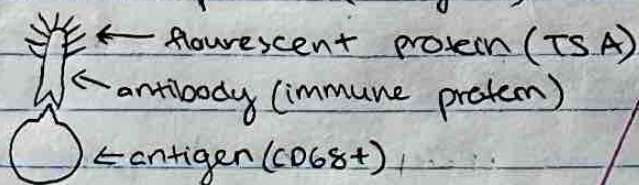 ← flourescent protein (TSA)
← antibody (immune protein)
← antigen (CD68+)